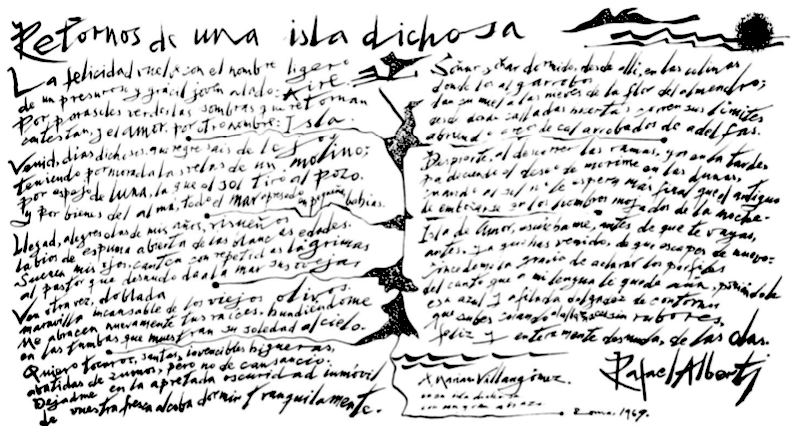 Retornos de una isla dichosa
La felicidad vuelve con el nombre ligero
de un presuroso y grácil joven alado: Aire.
Por parasoles verdes las sombras que retornan
contestan, y el amor, por otro nombre: Isla.
Venid, días dichosos, que regresáis de lejos
teniendo por morada las velas de un molino;
por espejo de luna, la que el sol tiró al pozo
y por bienes del alma, todo el mar apresado en pequeñas bahías.
Llegad, alegres olas de mis años, risueños
labios de espuma abierta de las blancas edades.
Suenen mis ojos, cantan con repetidas lágrimas
al pastor que desnudo da a la mar sus ovejas
Ven otra vez, doblada
maravilla incansable de los viejos olivos.
Me abracen nuevamente tus raíces, hundiéndome
en las tumbas que muestran su soledad al cielo.
Quiero tocaros, santas, invencibles higueras,
abatidas de zumos, pero no de cansancio.
Dejadme en la apretada oscuridad inmóvil
de vuestra fresca alcoba dormir tranquilamente.
Soñar, soñar dormido, desde allí, en las colinas
donde los algarrobos
dan su miel a las mieles de la flor del almendro;
desde donde calladas huertas corren sus límites
abriendo ecos de cal arrobados de adelfas.
Despierte, al descorrer las ramas, ya en la tarde
para diciendo el deseo de morirme en las dunas,
cuando al sol no le espera más final que el antiguo
de enterrarse por los hombros mojados de la noche.
Isla de Amor, escúchame, antes de que te vayas,
antes, ya que has venido, de que escapes de nuevo:
Concédeme la gracia de aclarar los perfiles
del canto que a mi lengua le quede aún, poniéndole
esa azul y afilada delgadez de contorno
que subes cuando al alba sin rubores,
feliz y enteramente desnuda, de las olas.
A Marian Villangómez.
esta isla dichosa
con un gran abrazo
Rafael Alberti
Roma. 1969.